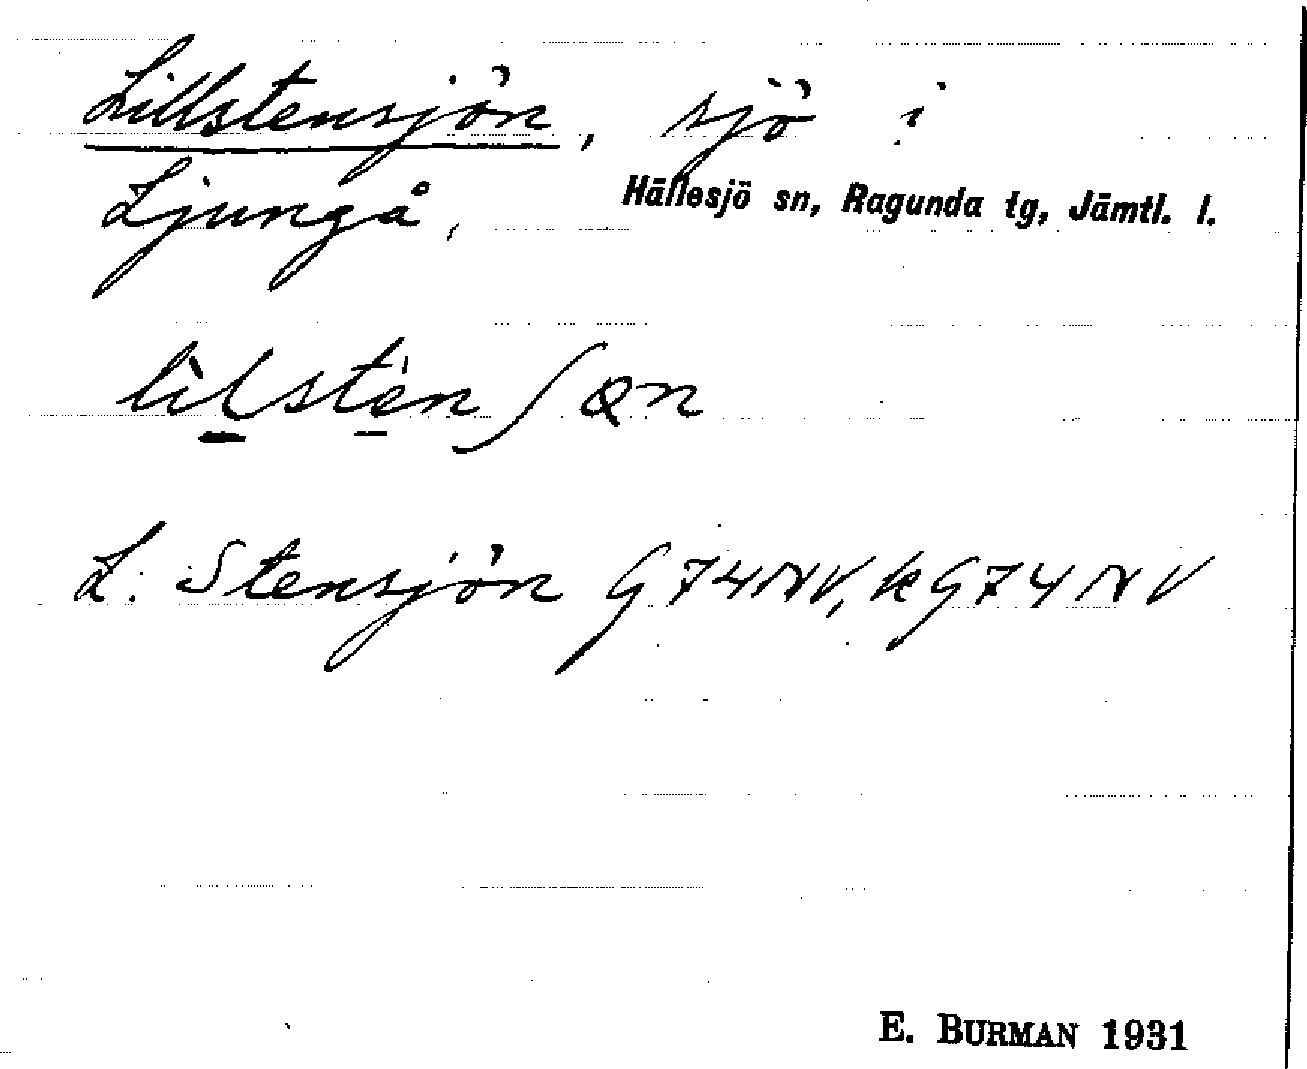 Lillstensjön, sjö i
Ljungå, Hällesjö sn, Ragunda tg, Jämtl. l.
lìlstènʃǫn
L. Stensjön G74NV, kG74NV
E. BURMAN 1931